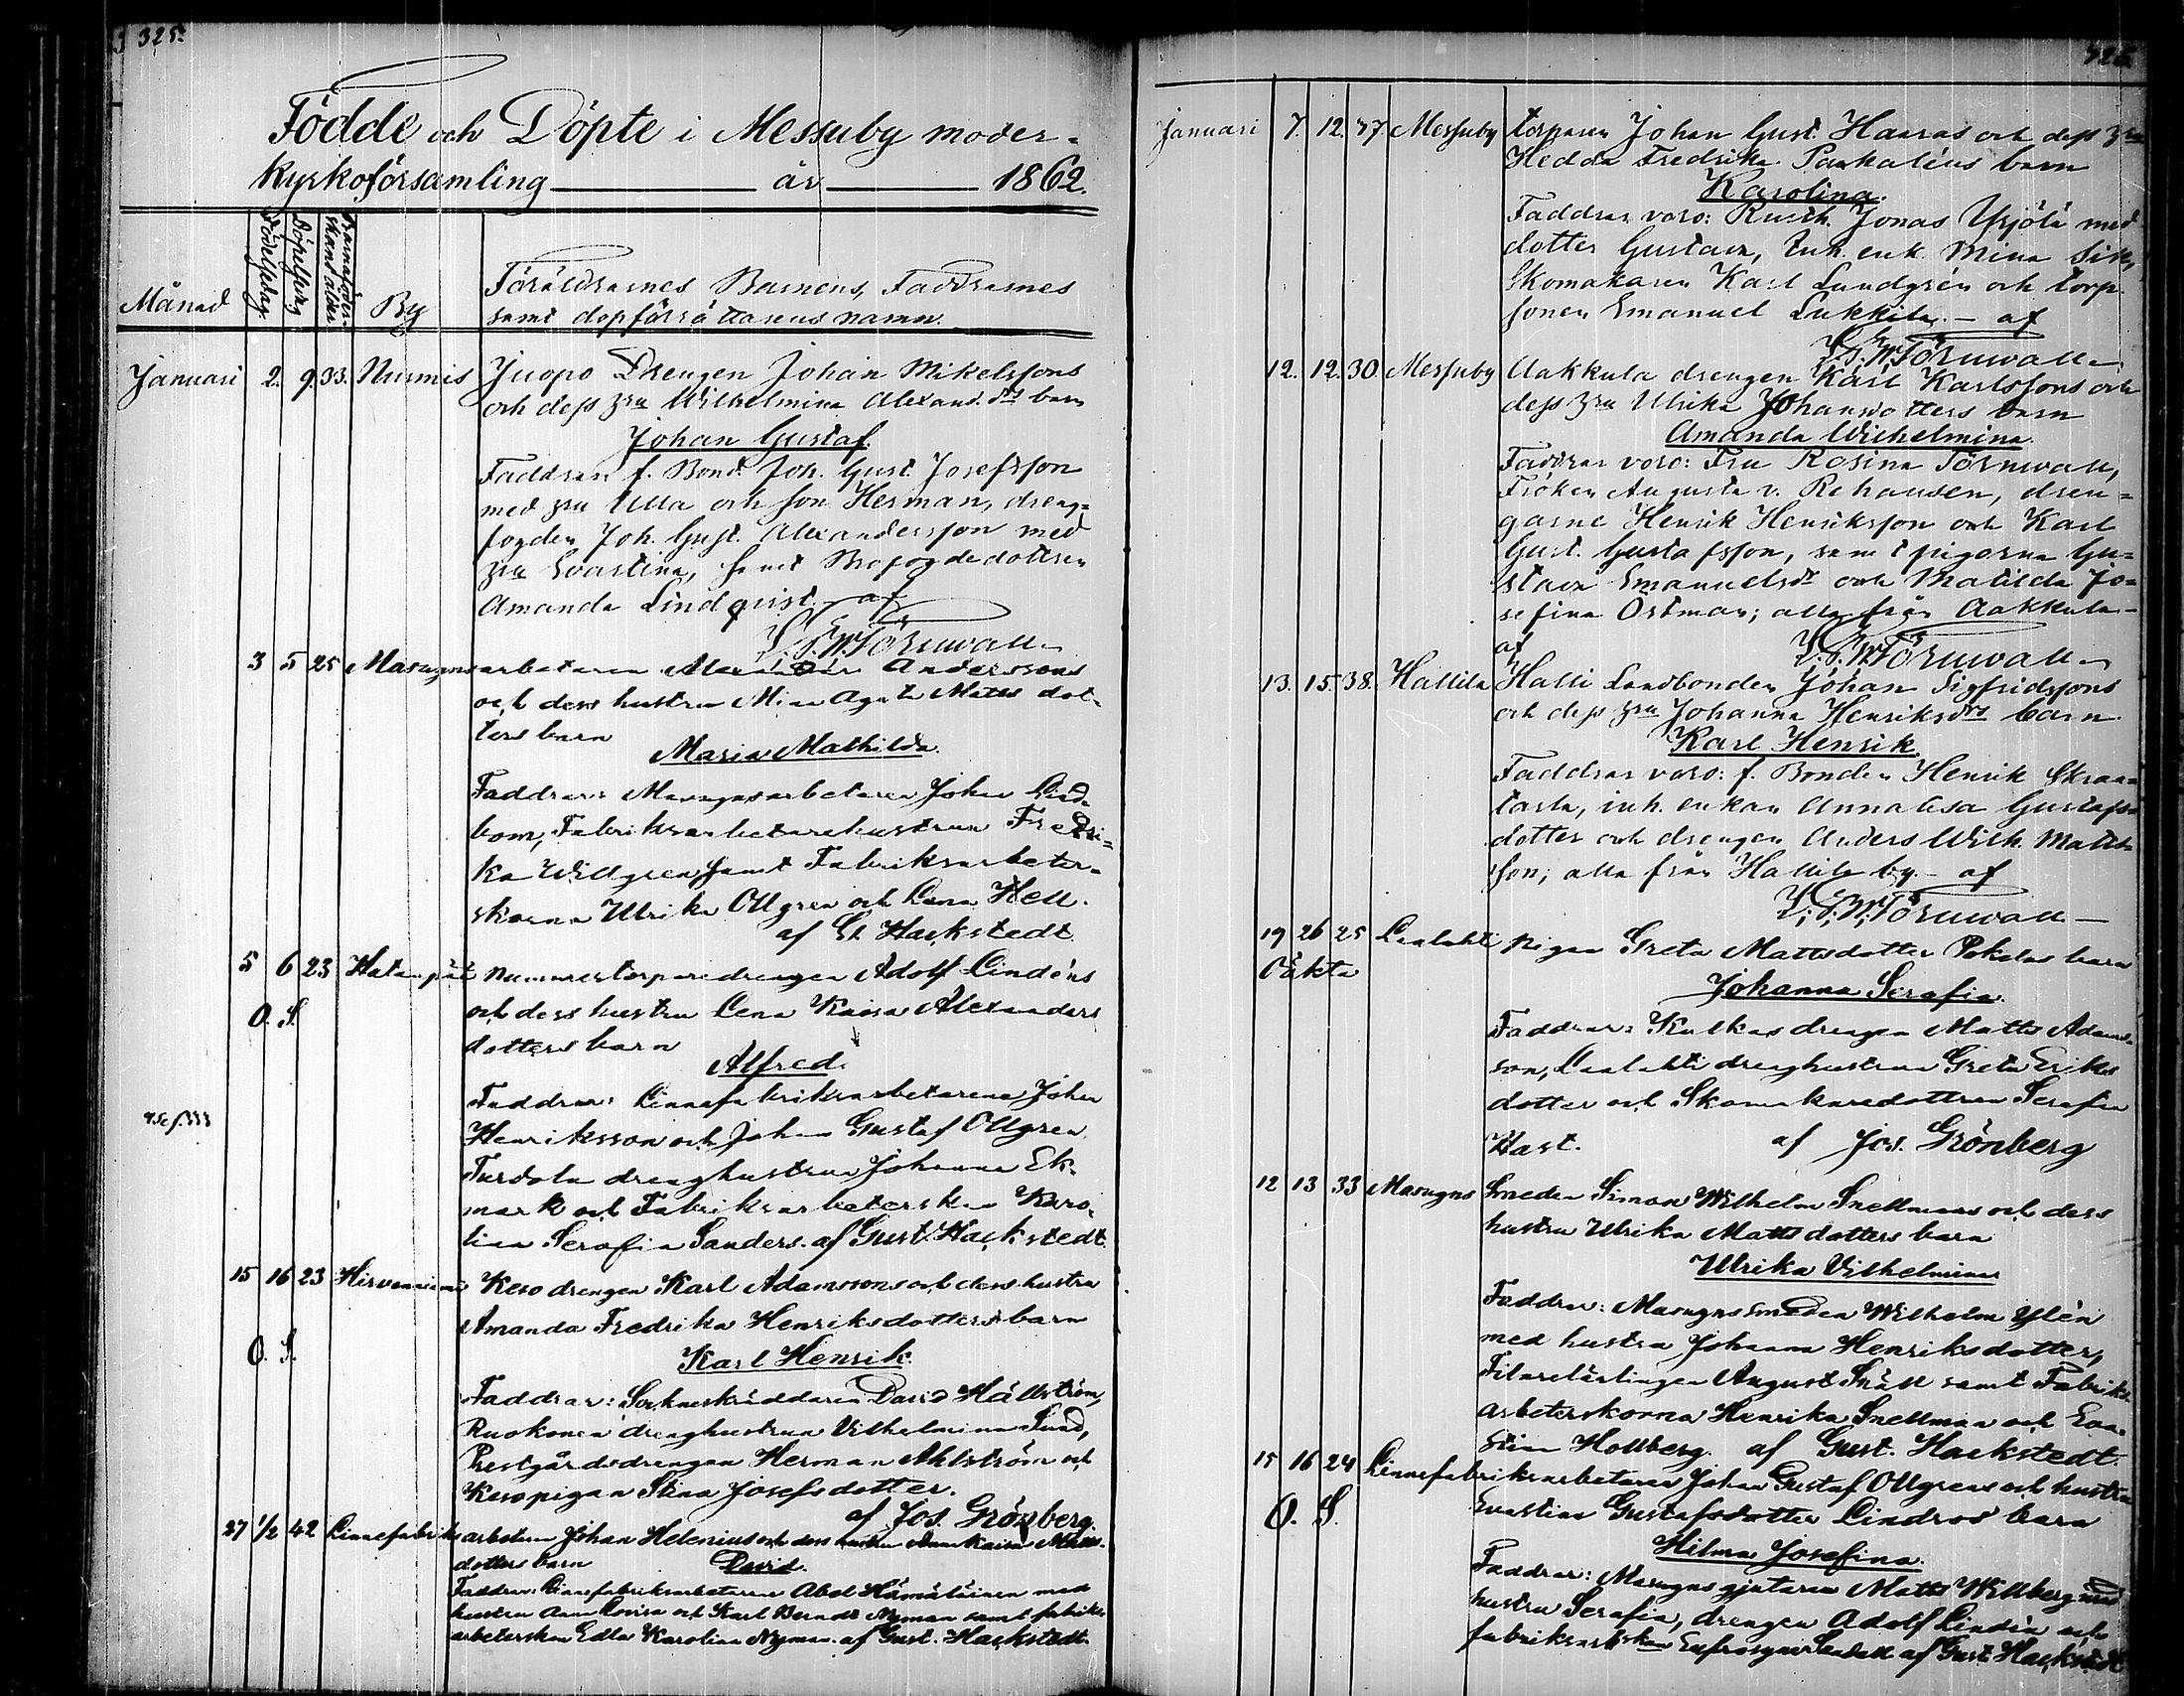 325.
Födde och Döpte i Messuby moder-
kyrkoförsamling år 1862.
Månad Födelsedag Döpelsedag By
Föräldrarnes Barnens, Faddrarnes
samt dopförrättarens namn.
Januari 2. 9. 33. Nurmis Juopo Drengen Johan Mikelssons
och dess hru Wilhelmina Alexand. drs barn
Johan Gustaf.
Faddrar f. Bond. Joh. Gust. Josefsson
med hru Ulla och son Herman, dreng-
fogden Joh. Gust. Alexandersson med
hru Evastina, samt Brofogdedottren
Amanda Lindqvist. – af
L.G.W. Törnwall
3 5 25 Masugnsarbetaren Alexander Anderssons
och dess hustru Mina Agata Matts dot-
ters barn
Maria Mathilda.
Faddrar: Masugnsarbetaren Johan Lind-
bom, Fabriksarbetarehustrun Fredri-
ka Willgren samt Fabriksarbeter-
skorna Ulrika Ollgren och Lena Hell.
af G. Hackstedt.
5 6 23 Hatanpää Nummestorparedrengen Adolf Lindéns
och dess hustru Lena Kaisa Alexanders
dotters barn
O. S.
Alfred.
Faddrar: Linnefabriksarbetarene Johan
Henriksson och Johan Gustaf Ollgren,
Turdola drenghustrun Johanna Ek-
mark och Fabriksarbeterskan Karo-
lina Serafia Sanders. af Gust. Hackstedt.
15 16 23 Hirvenniemi Keso drengen Karl Adamssons och dess hustru
Amanda Fredrika Henriksdotters barn
O. S.
Karl Henrik.
Faddrar: Sockneskräddaren David Hällström,
Ruokonen drenghustrun Vilhelmina Sund,
Prestgårdsdrengen Herman Ahlström och
Kesopigan Stina Josefsdotter.
af Jos. Grönberg.
27 1/2 42 Linnefabriksarbetaren Johan Helenius och dess hustru Anna Kaisa Matts-
dotters barn
David.
Faddrar: Linnefabriksarbetaren Abel Hämäläinen med
hustru Anna Lovisa och Karl Berndt Nyman samt fabriks-
arbeterskan Edla Karolina Nyman. af Gust. Hackstedt.
Januari 7. 12. 37 Messuby torparen Johan Gust. Haaras och dess hru
Hedda Fredrika Paxkaléns barn
Karolina.
Faddrar voro: Rusth. Jonas Yrjölä med
dotter Gustava, Inh. enk. Mina Sik,
Skomakaren Karl Lundgrén och torp.
sonen Emanuel Lukkila. – af
L.G.W. Törnwall
12. 12. 30 Messuby Aakkula drengen Karl Karlssons och
dess hru Ulrika Johansdotters barn
Amanda Wilhelmina.
Faddrar voro: Fru Rosina Törnwall,
Fröken Augusta v. Rehausen, dren-
garne Henrik Henriksson och Karl
Gust. Gustafsson, samt pigorna Gu-
stava Emanuelsdr och Matilda Jo-
sefina Östman; alla från Aakkula –
af
L.G.W. Törnwall
13. 15. 38. Hallila Halli Landbonden Johan Sigfridssons
och dess hru Johanna Henriksdrs barn
Karl Henrik.
Faddrar voro: f. Bonden Henrik Skraa-
tarla, inh. enkan Annalisa Gustafs-
dotter och drengen Anders Wilh. Matts-
son; alla från Hallila by. – af
L.G.W. Törnwall
19 26 25 Laalahti Pigan Greta Mattsdotter Pokelas barn
Oäkta
Johanna Serafia.
Faddrar: Kulkas drengen Matts Adams-
son, Laalahti drenghustrun Greta Eriks
dotter och Skomakaredottren Serafia
Kast. af Jos. Grönberg
12 13 33 Masugns Smeden Simon Wilhelm Snellmans och dess
hustru Ulrika Mattsdotters barn
Ulrika Vilhelmina
Faddrar: Masugnssmeden Wilhelm Ylén
med hustru Johanna Henriksdotter,
Filarelärlingen August Snäll samt Fabriks-
arbeterskorna Henrika Snellman och Eva-
stina Hollberg. af Gust. Hackstedt.
15 16 24 Linnefabriksarbetaren Johan Gustaf Ollgrens och hustru
Evastina Gustafsdotter Lindros barn
O. S.
Hilma Josefina.
Faddrar: Masugnsgjutaren Matts Willberg med
hustru Serafia, drengen Adolf Lindén och
fabriksarbskan Eufrosyne af Gust. Hackstedt